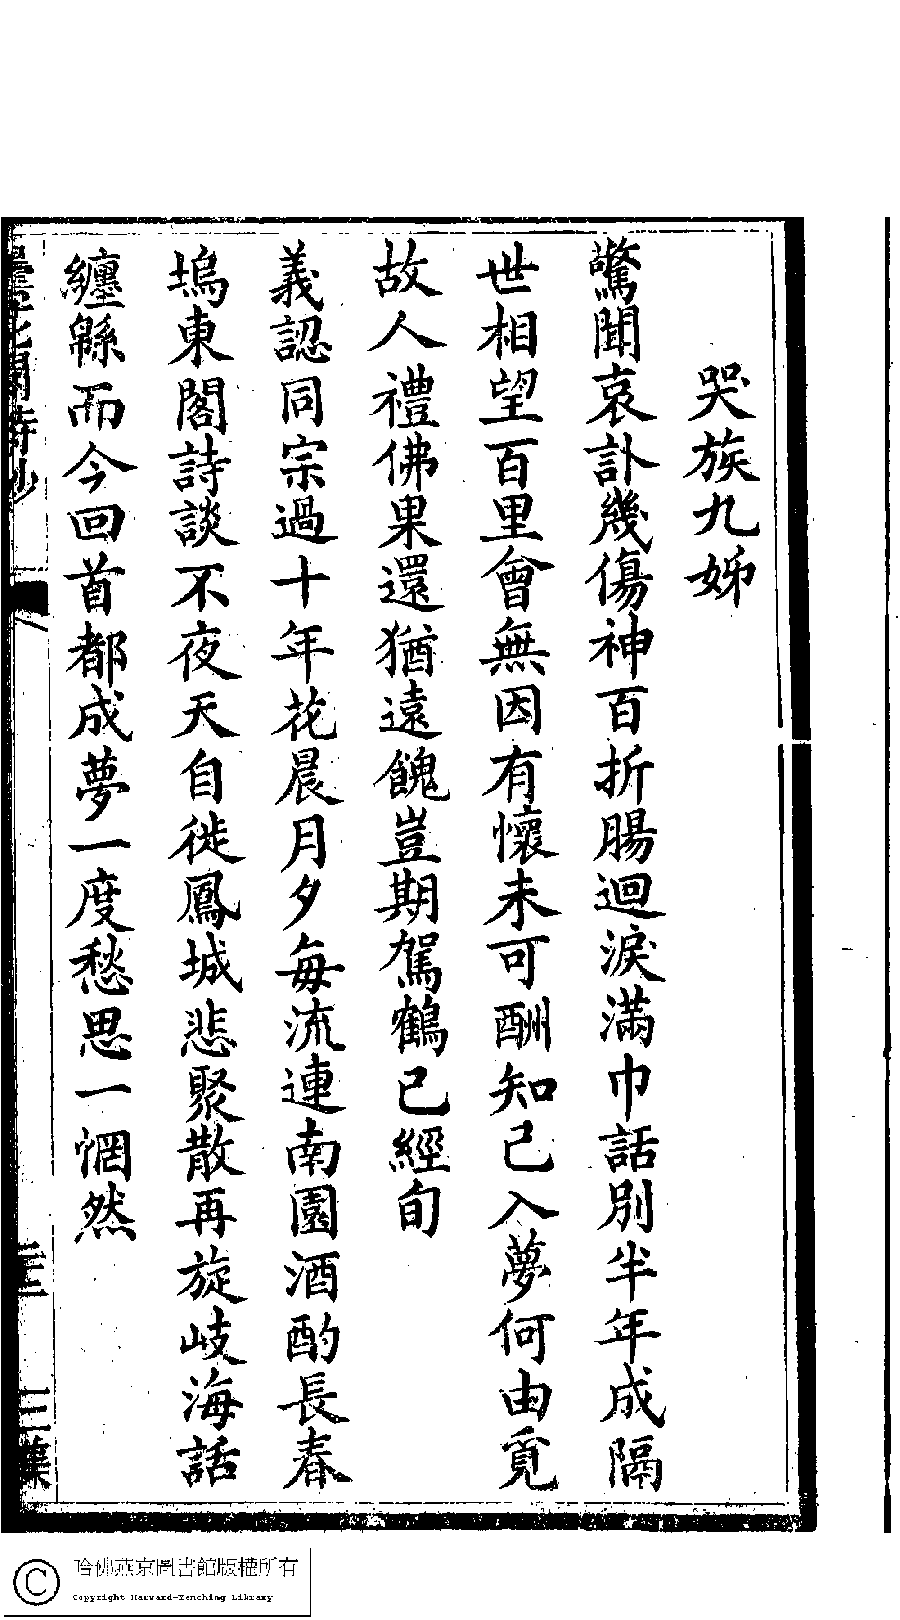 哭族九姊
驚聞哀訃幾傷神百折腸迴淚滿巾話別半年成隔
世相望百里會無因有懷未可酬知己入夢何由覓
故人禮佛果還猶遠餽豈期駕鶴已經旬
義認同宗過十年花晨月夕每流連南園酒酌長春
塢東閣詩談不夜天自徙鳳城悲聚散再旋岐海話
纏緜而今回首都成夢一度愁思一惘然
三集
哈佛燕京圖書館版權所有
Copyright Harvard-Yenching Library